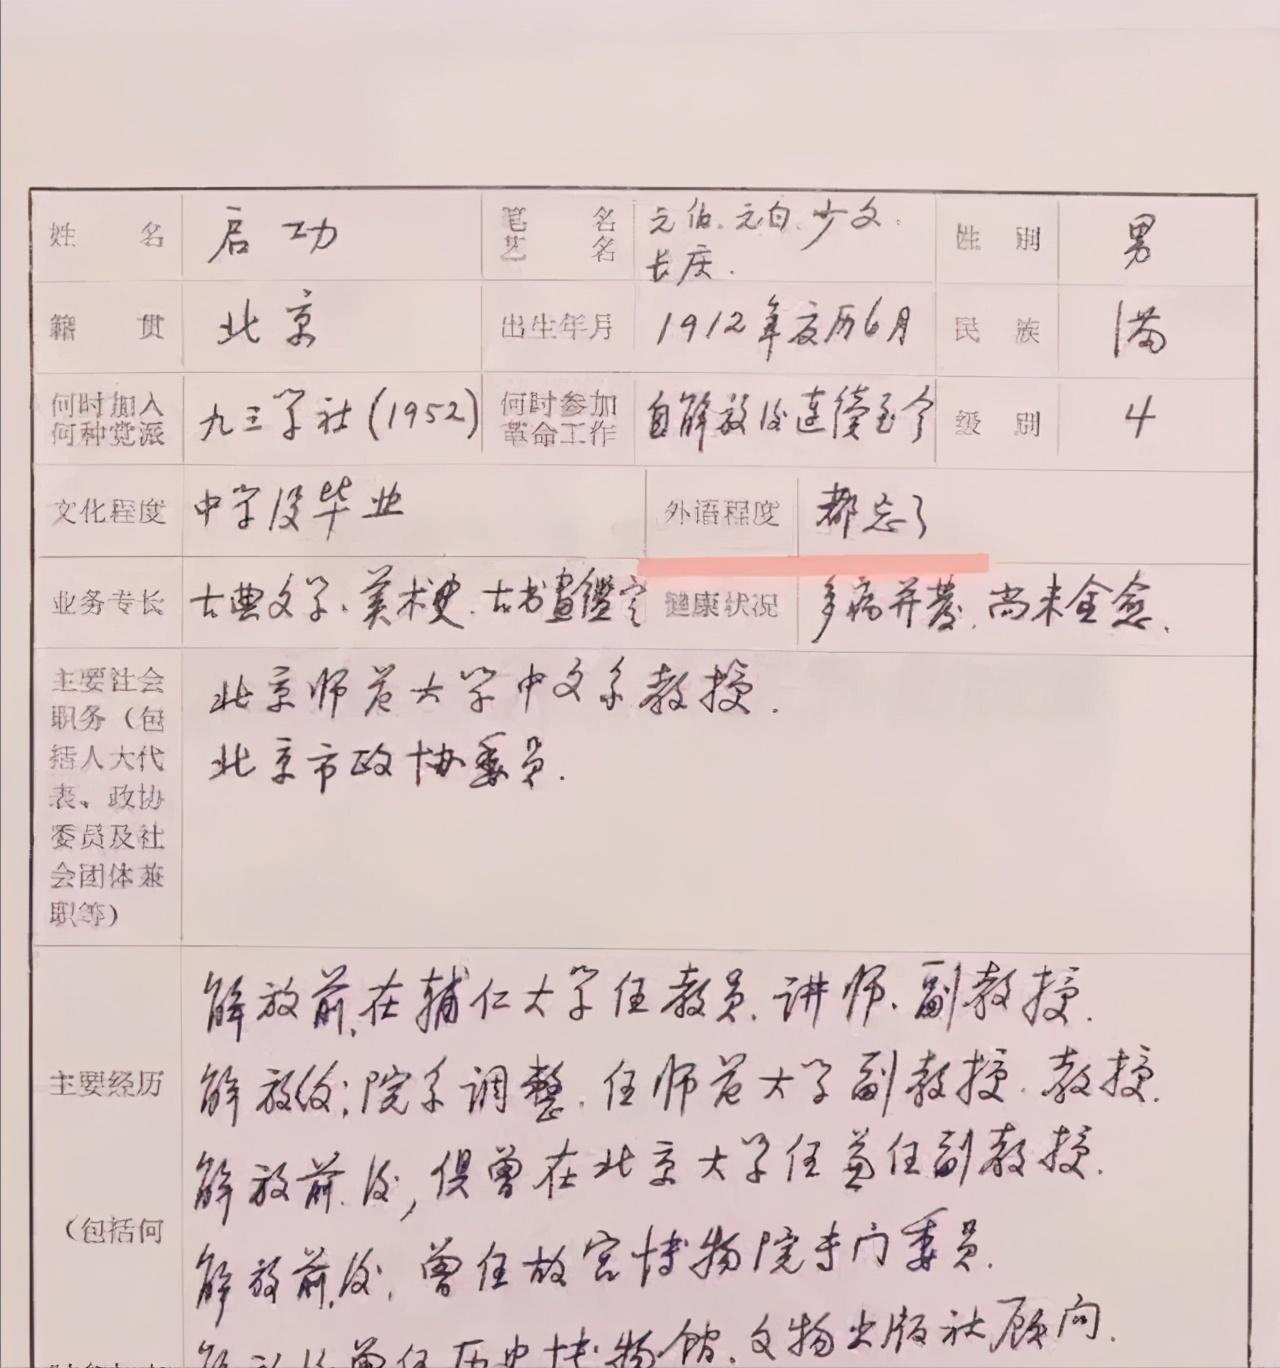 姓名 启功 笔名 艺名 元伯、元白、少文、长庆. 性别 男
籍贯 北京 出生年月 1912年夏历6月 民族 满
何时加入何种党派 九三学社(1952) 何时参加革命工作 自解放后连续至今 级别 4
文化程度 中学没毕业 外语程度 都忘了
业务专长 古典文学、美术史、古书画鑑定 健康状况 多病并发、尚未全愈.
主要社会职务（包括人大代表、政协委员及社会团体兼职等）
北京师范大学中文系教授.
北京市政协委员.
主要经历
（包括何
解放前,在辅仁大学任教员、讲师、副教授.
解放後;院系调整.任师范大学副教授.教授.
解放前、后,俱曾在北京大学任兼任副教授.
解放前、后,曾任故宫博物院专门委员.
解放后曾任历史博物馆、文物出版社顾问.